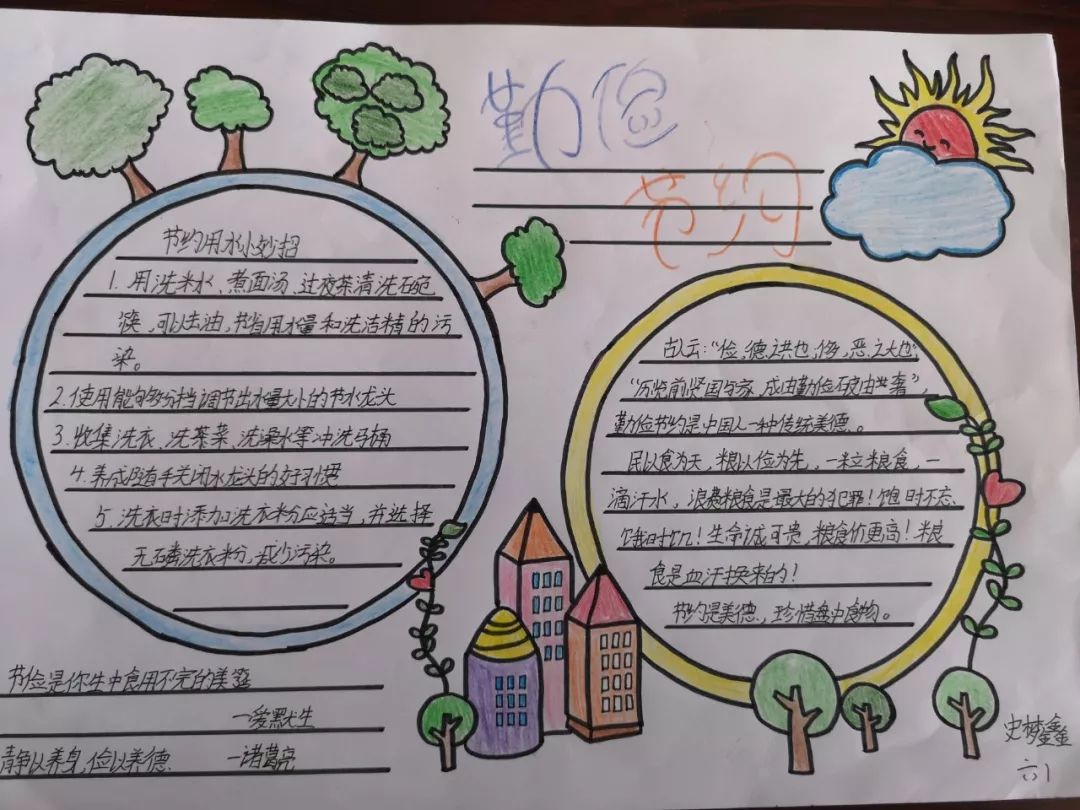 勤俭
节约
节约用水小妙招
1. 用洗米水、煮面汤、过夜茶清洗碗
筷，可以去油，节省用水量和洗洁精的污
染。
2. 使用能够分档调节出水量大小的节水龙头
3. 收集洗衣、洗菜、洗澡水等冲洗马桶
4. 养成随手关闭水龙头的好习惯
5. 洗衣时添加洗衣粉应适当，并选择
无磷洗衣粉，减少污染。
古人云：“俭，德之共也，侈，恶之大也”
“历览前贤国与家，成由勤俭破由奢”，
勤俭节约是中国人一种传统美德。
民以食为天，粮以俭为先，一粒粮食，一
滴汗水，浪费粮食是最大的犯罪！饱时不忘
饿时饥！生命诚可贵，粮食价更高！粮
食是血汗换来的！
节约是美德，珍惜盘中食物。
节俭是你生中食用不完的美筵
—爱默生
静以养身，俭以养德。 —诸葛亮
史梦鑫
六1